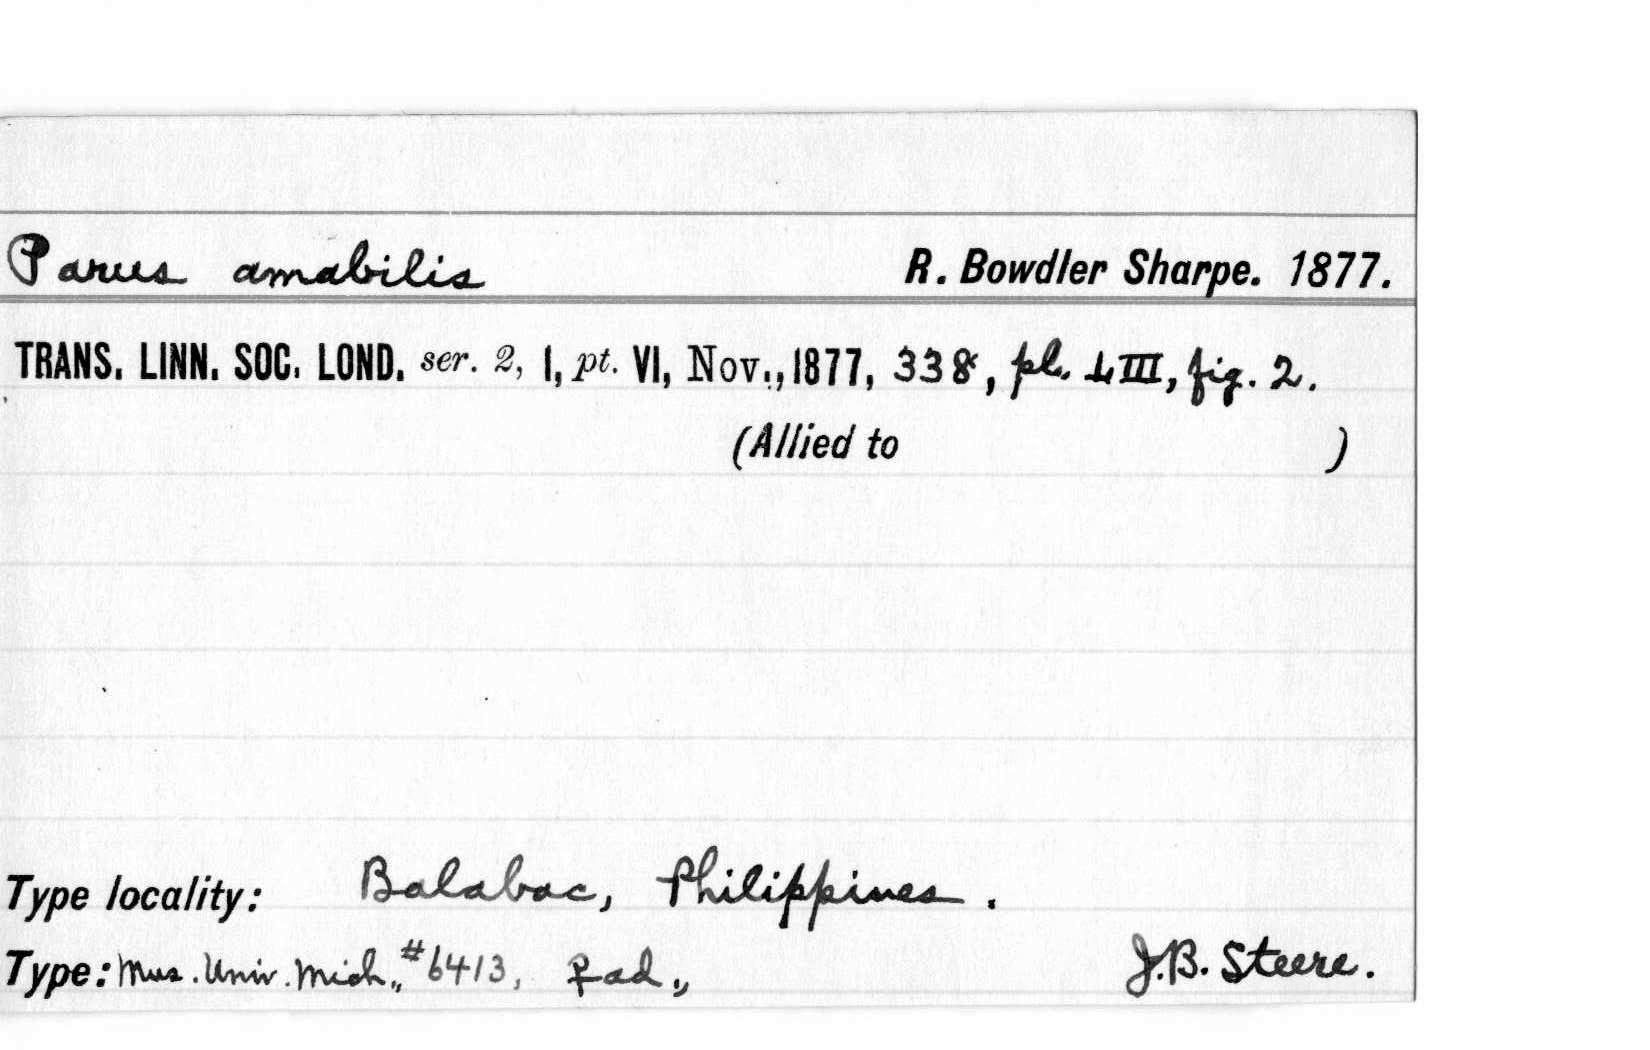 Parus amabilis R. Bowdler Sharpe. 1877.
TRANS. LINN. SOC. LOND. ser. 2, I, pt. VI, Nov., 1877, 338, pl. LIII, fig. 2.
(Allied to )
Type locality: Balabac, Philippines.
Type: Mus. Univ. Mich., #6413, ♀ ad., J.B. Steere.